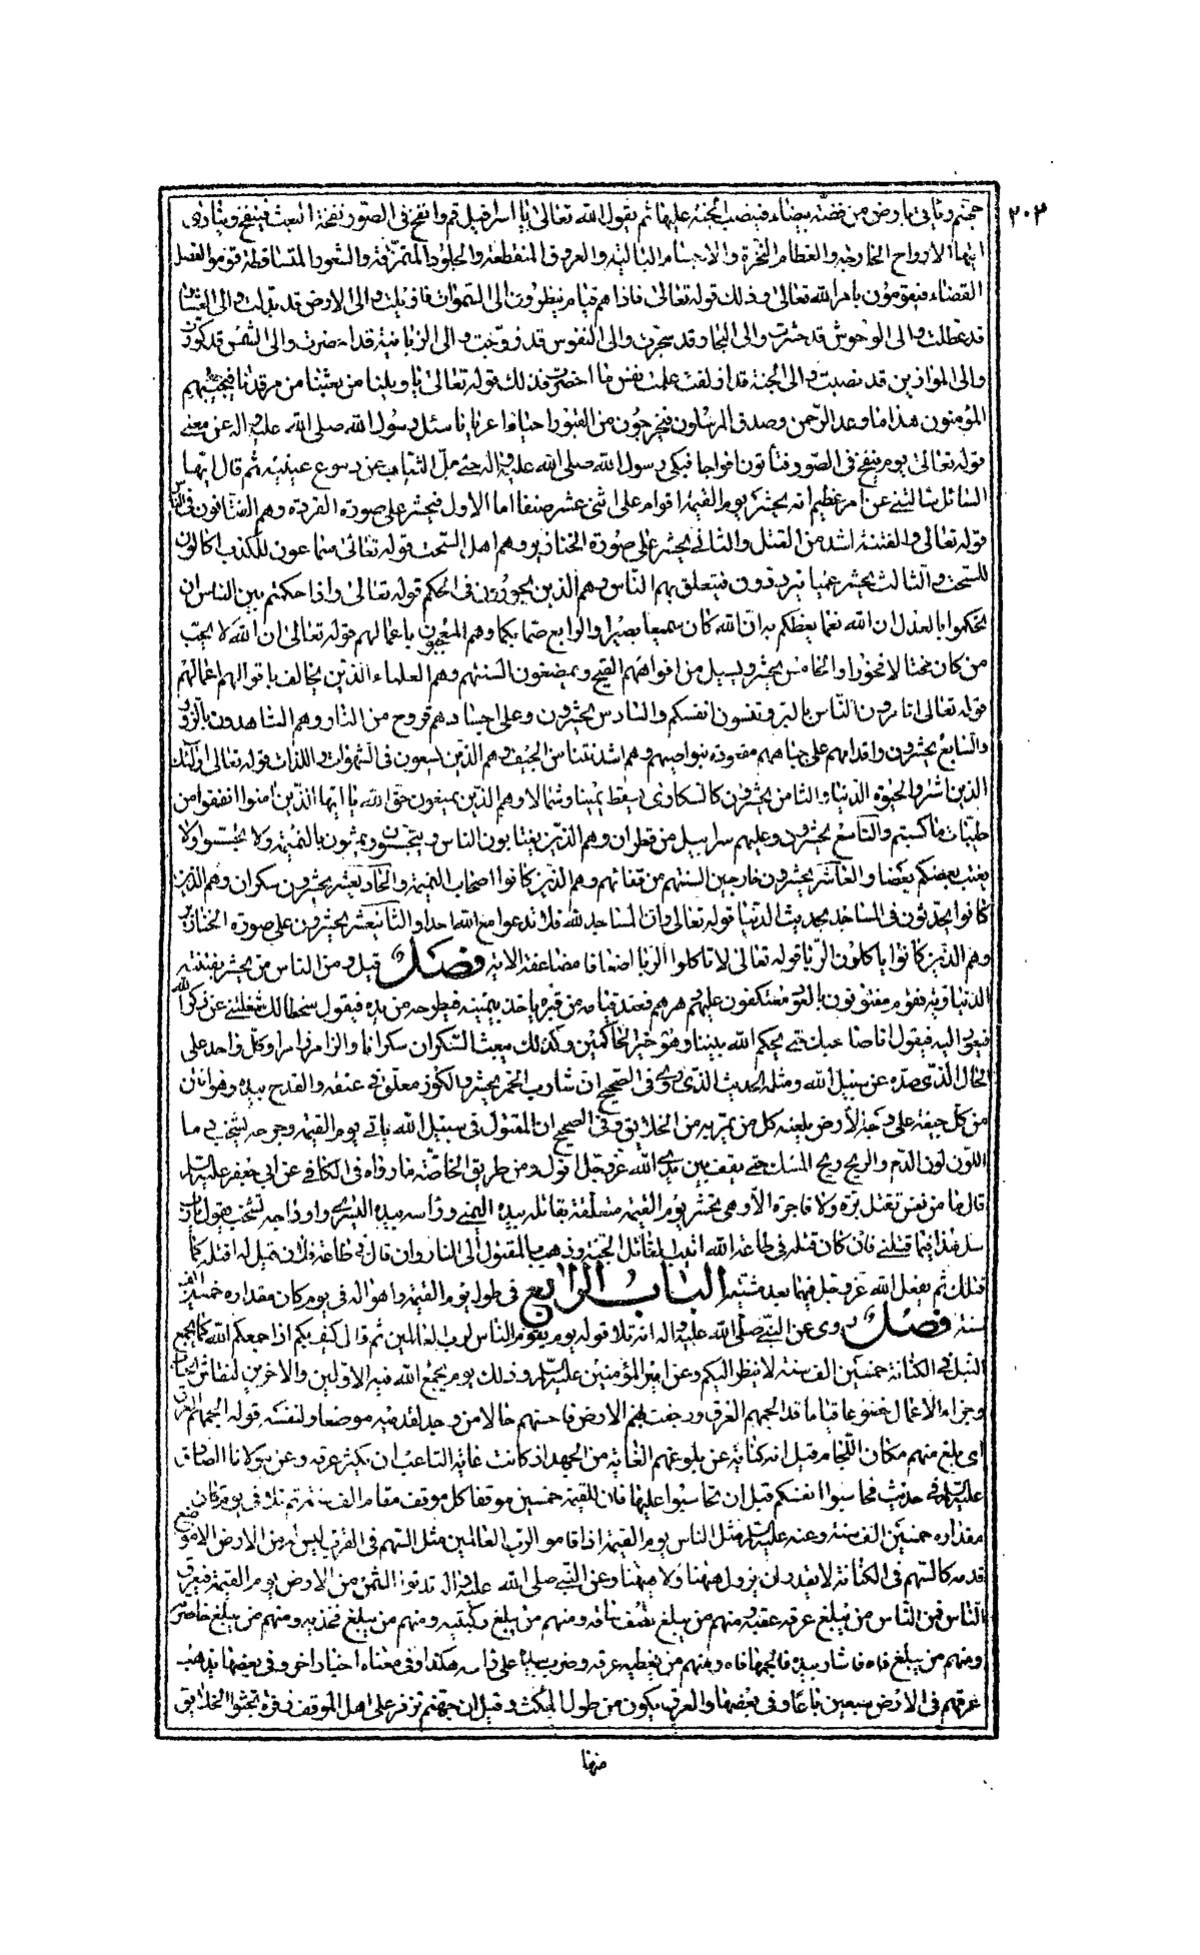 ٢٠٣
جهنم وياتى بارض من فضة بيضاء فينصب الجنة عليها ثم يقول الله تعالى يا اسرافيل قم وانفخ فى الصور نفخة البعث فينفخ وينادى
ايتها الارواح الخارجة والعظام النخرة والاجسام البالية والعروق المنقطعة والجلود المتمزقة والشعور المتساقطة قوموا لفصل
القضاء فيقومون بامر الله تعالى وذلك قوله تعالى فاذا هم قيام ينظرون الى السموات قد و الى الارض قد بدلت والى العشار
قد عطلت والى الوحوش قد حشرت والى البحار قد سجرت والى النفوس قد زوجت والى الزبانية قد احضرت والى الشمس قد كورت
والى الموازين قد نصبت والى الجنة قد ازلفت علمت نفس ما احضرت فذلك قوله تعالى يا ويلنا من بعثنا من مرقدنا فيجيبهم
المؤمنون هذا ما وعد الرحمن وصدق المرسلون فيخرجون من القبور احياء عرايا سئل رسول الله صلى الله عليه واله عن معنى
قوله تعالى يوم ينفخ فى الصور فتأتون افواجا فبكى رسول الله صلى الله عليه واله حتى بل الثياب عن دموع عينيه ثم قال ايها
السائل سالتنى عن امر عظيم انه يحشر يوم القيمة اقوام على اثنى عشر صنفا اما الاول فيحشر على صورة القردة وهم الفتانون فى الناس
قوله تعالى والفتنة اشد من القتل والثانى يحشر على صورة الخنازير وهم اهل السحت قوله تعالى سماعون للكذب اكالون
للسحت والثالث يحشر عميا يترددون فيتعلق بهم الناس وهم الذين يجورون فى الحكم قوله تعالى واذا حكمتم بين الناس ان
تحكموا بالعدل ان الله نعما يعظكم به ان الله كان سميعا بصيرا والرابع صما بكما وهم المعجبون باعمالهم قوله تعالى ان الله لا يحب
من كان مختالا فخورا والخامس يحشر ويسيل من افواههم القيح ويمضغون السنتهم وهم العلماء الذين يخالف اقوالهم اعمالهم
قوله تعالى اتامرون الناس بالبر وتنسون انفسكم والسادس يحشرون وعلى اجسادهم قروح من النار وهم الشاهدون بالزور
والسابع يحشرون واقدامهم على جباههم معقودة بنواصيهم وهم اشد نتنا من الجيف وهم الذين يتبعون فى الشهوات واللذات قوله تعالى اولئك
الذين اشتروا الحيوة الدنيا والثامن يحشرون كالسكارى يسقط يمينا وشمالا وهم الذين يمنعون حق الله يا ايها الذين امنوا انفقوا من
طيبات ما كسبتم والتاسع يحشرون وعليهم سرابيل من قطران وهم الذين يغتابون الناس ويتجسسون ويمشون بالنميمة ولا تجسسوا ولا
يغتب بعضكم بعضا والعاشر يحشرون خارجين السنتهم من قفائهم وهم الذين كانوا اصحاب النميمة والحاديعشر يحشرون سكران وهم الذين
كانوا يحدثون فى المساجد بحديث الدنيا قوله تعالى وان المساجد لله فلا تدعوا مع الله احدا والثانيعشر يحشرون على صورة الخنازير
وهم الذين كانوا ياكلون الربا قوله تعالى لا تاكلوا الربا اضعافا مضاعفة الاية فصل قيل ومن الناس من يحشر بفتنته
الدنياوية فقوم مفتونون بالعود معتكفون عليه فعند قيامه من قبره ياخذ بيمينه فيطرحه من يده فيقول سحقا لك شغلتنى عن ذكر الله
فيعود اليه فيقول انا صاحبك حتى يحكم الله بيننا وهو خير الحاكمين وكذلك يبعث السكران سكرانا والزامر زامرا وكل واحد على
الحال الذى صده عن سبيل الله ومثله الحديث الذى روى فى الصحيح ان شارب الخمر يحشر والكوز معلق فى عنقه والقدح بيده وهو انتن
من كل جيفة على وجه الارض يلعنه كل من يمر به من الخلايق وفى الصحيح ان المقتول فى سبيل الله ياتى يوم القيمة وجرحه يشخب دما
اللون لون الدم والريح ريح المسك حتى يقف بين يدى الله عز وجل اقول ومن طريق الخاصة ما رواه فى الكافى عن ابى جعفر عليه السلام
قال ما من نفس تقتل برة ولا فاجرة الا وهى تحشر يوم القيمة متعلقة بقاتله بيده اليمنى وراسه بيده اليسرى واوداجه تشخب يقول يا رب
سل هذا فيما قتلنى فان كان قتله فى طاعة الله اثيب القاتل الجنة وذهب بالمقتول الى النار وان قال فى طاعة فلان قيل له اقتله كما
قتلك ثم يفعل الله عز وجل فيهما بعد مشيته الباب الرابع فى طول يوم القيمة واهواله فى يوم كان مقداره خمسين الف
سنة فصل روى عن النبى صلى الله عليه واله انه تلا قوله يوم يقوم الناس لرب العالمين ثم قال كيف بكم اذا جمعكم الله كما يجمع
النبل فى الكنانة خمسين الف سنة لا ينظر اليكم وعن امير المؤمنين عليه السلام وذلك يوم يجمع الله فيه الاولين والاخرين لنقاش الحساب
وجزاء الاعمال خضوعا قياما قد الجمهم العرق ورجفت بهم الارض فاحسنهم حالا من وجد لقدميه موضعا ولنفسه قوله الجمهم العرق
اى بلغ منهم مكان اللجام وقيل انه كناية عن بلوغهم الغاية من الجهد اذ كانت غاية التاعب ان يكثر عرقه وعن مولانا الصادق
عليه السلام فى حديث فحاسبوا انفسكم قبل ان تحاسبوا عليها فان للقيمة خمسين موقفا كل موقف مقام الف سنة ثم تلا فى يوم كان
مقداره خمسين الف سنة وعنه عليه السلام مثل الناس يوم القيمة اذا قاموا لرب العالمين مثل السهم فى القرب ليس له من الارض الا موضع
قدمه كالسهم فى الكنانة لا يقدر ان يزول ههنا ولا ههنا وعن النبى صلى الله عليه واله تدنوا الشمس من الارض يوم القيمة فيعرق
الناس فمن الناس من يبلغ عرقه عقبه ومنهم من يبلغ نصف ساقه ومنهم من يبلغ ركبتيه ومنهم من يبلغ فخذيه ومنهم من يبلغ خاصرته
ومنهم من يبلغ فاه فاشار بيده فالجمها فاه ومنهم من يغطيه عرقه وضرب بيده على راسه هكذا وفى معناه اخبار اخر وفى بعضها يذهب
عرقهم فى الارض سبعين باعا وفى بعضها والعرق يكون من طول المكث وقيل ان جهنم تزفر على اهل الموقف زفرة تجثوا الخلايق
منها